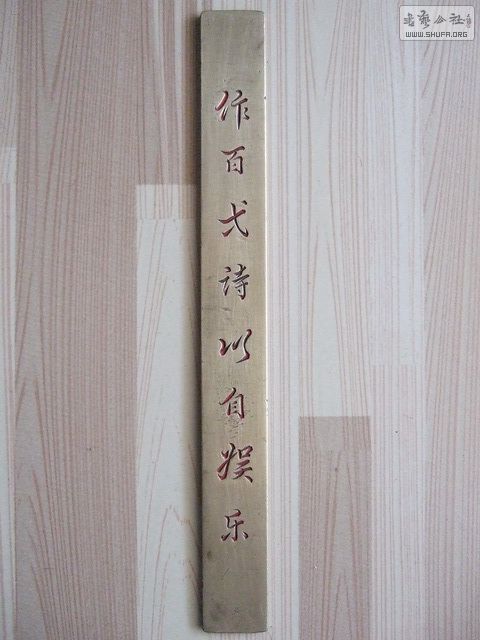 作百弌詩以自娱乐
書藝公社
WWW.SHUFA.ORG